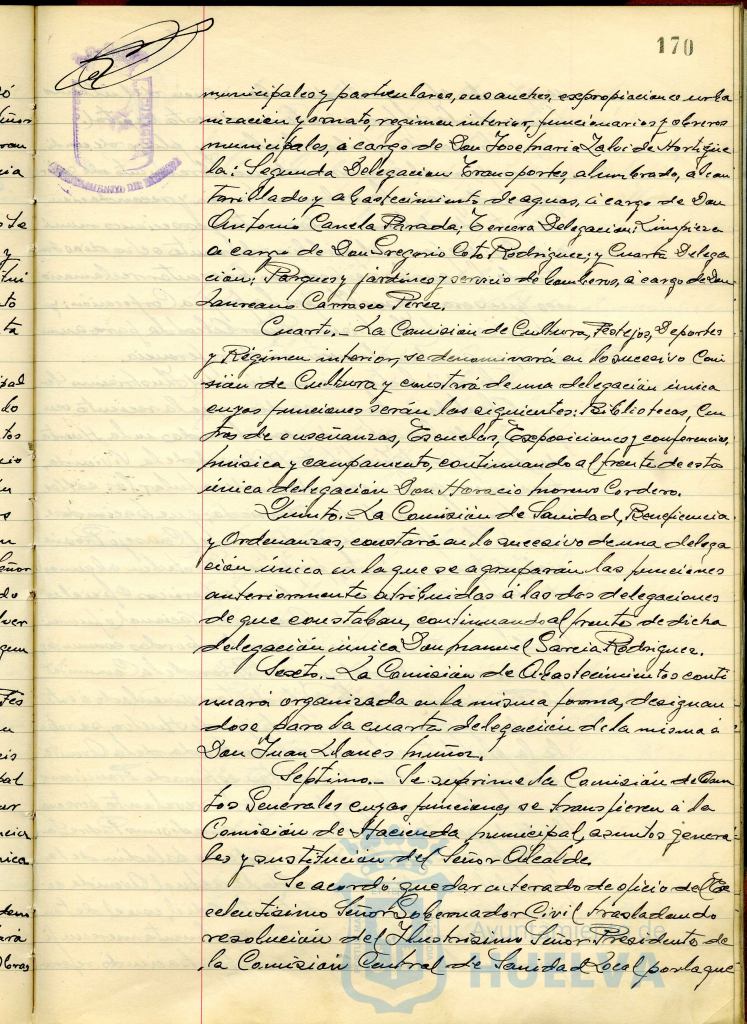 170
municipales y particulares, ensanches, expropiaciones urba
nización y ornato, regimen interior, funcionarios y obreros
municipales, á cargo de Don Jose Maria Zalvide Hortigüe
la: Segunda Delegacion Transportes, alumbrado, alcan
tarillado y abastecimiento de aguas, á cargo de Don
Antonio Canela Parada; Tercera Delegacion: Limpieza
á cargo de Don Gregorio Coto Rodriguez; y Cuarta Delega
ción; Parques y jardines y servicio de bomberos, á cargo de Don
Laureano Carrasco Perez.
Cuarto.- La Comisión de Cultura, Festejos, Deportes
y Régimen interior, se denominará en lo sucesivo Comi
sión de Cultura y constará de una delegación única
cuyas funciones serán las siguientes: Bibliotecas, Cen
tros de enseñanzas, Escuelas, Exposiciones y conferencias,
música y campamento, continuando al frente de esta
única delegación Don Horacio Moreno Cordero.
Quinto.- La Comisión de Sanidad, Beneficencia
y Ordenanzas, constará en lo sucesivo de una delega
ción única en la que se agruparán las funciones
anteriormente atribuidas á las dos delegaciones
de que constaban, continuando al frente de dicha
delegación única Don Manuel Garcia Rodriguez.
Sexto.- La Comisión de Abastecimientos conti
nuará organizada en la misma forma, designan-
dose para la cuarta delegación de la misma á
Don Juan Llanes Muñoz.
Septimo.- Se suprime la Comisión de Asun
tos Generales cuyas funciones se transfieren á la
Comisión de Hacienda municipal, asuntos genera-
les y sustitución del Señor Alcalde.
Se acordó quedar enterado de oficio del Ex
celentisimo Señor Gobernador Civil trasladando
resolución del Ilustrisimo Señor Presidente de
la Comisión Central de Sanidad Local por la que
Ayuntamiento de
HUELVA